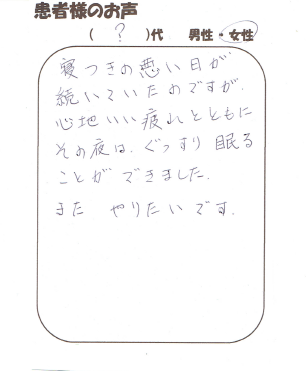 患者様のお声
( ? )代 男性・女性
寝つきの悪い日が
続いていたのですが、
心地いい疲れとともに
その夜は、ぐっすり眠る
ことができました。
また やりたいです。